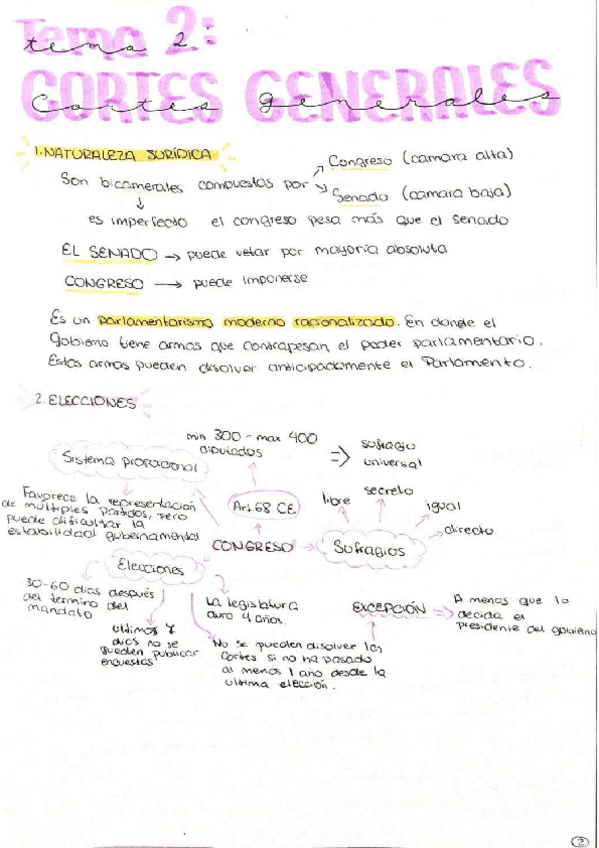 Tema 2:
tema 2
CORTES GENERALES
Cortes generales
1. NATURALEZA JURÍDICA
Congreso (camara alta)
Son bicamerales compuestas por
Senado (camara baja)
es imperfecto el congreso pesa más que el senado
EL SENADO → puede vetar por mayoría absoluta
CONGRESO → puede imponerse
Es un parlamentarismo moderno racionalizado. En donde el
gobierno tiene armas que contrapesan el poder parlamentario.
Estas armas pueden disolver anticipadamente el Parlamento.
2. ELECCIONES
min 300 - max 400
diputados
⇒ sufragio
universal
Sistema proporcional
Favorece la representación
de multiples partidos, pero
puede dificultar la
estabilidad gubernamental
Art. 68 CE
libre
secreto
igual
directo
CONGRESO → Sufragios
Elecciones
30-60 dias después
del termino del
mandato
ultimos 7
dias no se
pueden publicar
encuestas
La legislatura
dura 4 años.
No se pueden disolver las
Cortes si no ha pasado
al menos 1 año desde la
ultima elección.
EXCEPCIÓN →
A menos que lo
decida el
presidente del gobierno
2